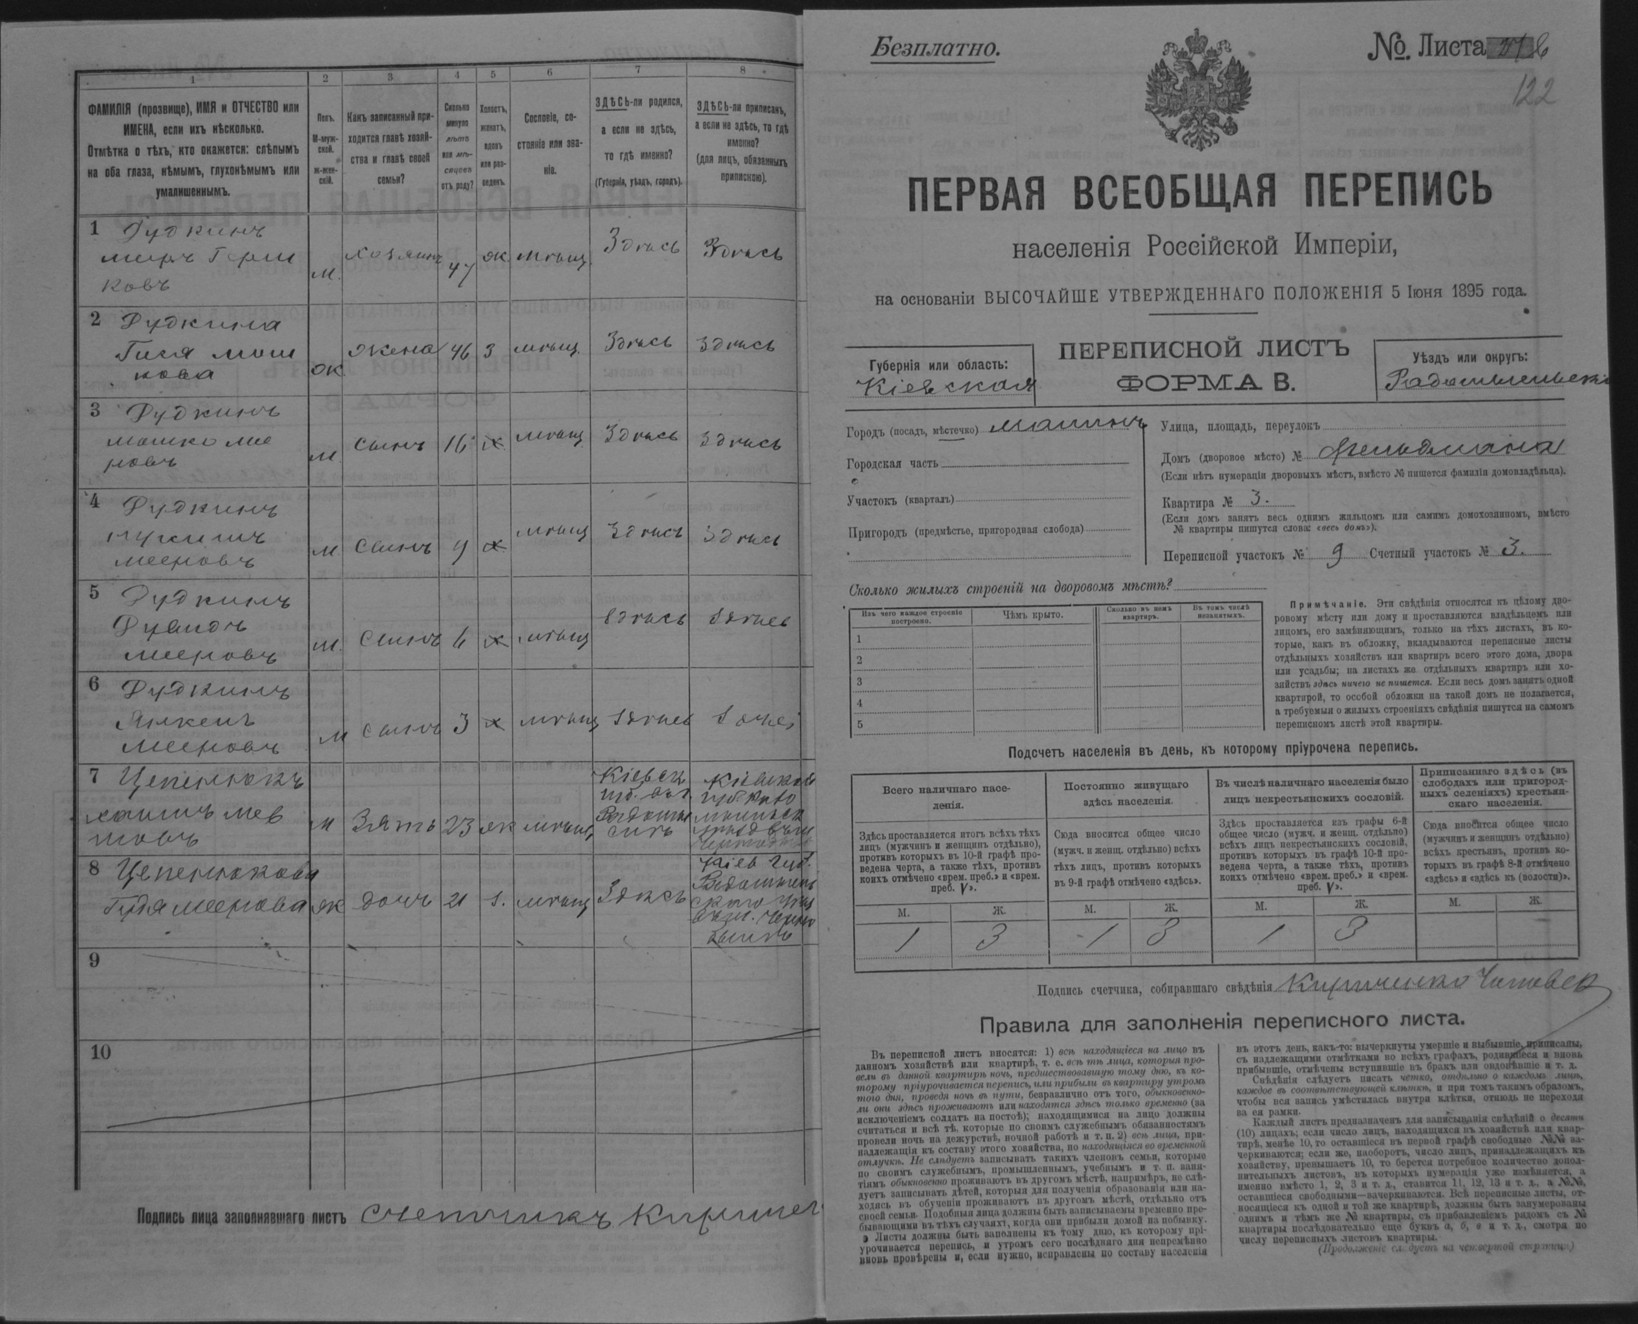 1
2
3
4
5
6
7
8
ФАМИЛІЯ (прозвище), ИМЯ и ОТЧЕСТВО или
ИМЕНА, если ихъ нѣсколько.
Отмѣтка о тѣхъ, кто окажется: слѣпымъ
на оба глаза, нѣмымъ, глухонѣмымъ или
умалишеннымъ.
Полъ.
М-муж-
ской.
ж-жен-
скій.
Какъ записанный при-
ходится главѣ хозяй-
ства и главѣ своей
семьи?
Сколько
минуло
лѣтъ
или мѣ-
сяцевъ
отъ роду?
Холостъ,
женатъ,
вдовъ
или раз-
веденъ.
Сословіе, со-
стояніе или зва-
ніе.
ЗДѢСЬ-ли родился,
а если не здѣсь,
то гдѣ именно?
(Губернія, уѣздъ, городъ).
ЗДѢСЬ-ли приписанъ,
а если не здѣсь, то гдѣ
именно?
(для лицъ, обязанныхъ
припискою).
1 Рудкинъ
Меиръ Герш
ковъ
м. Хозяинъ 47 ж мѣщ. Здѣсь Здѣсь
2 Рудкина
Гися Мош
кова
ж жена 46 З мѣщ. Здѣсь Здѣсь
3 Рудкинъ
Мошко Мее
ровъ
м. Сынъ 16 х мѣщ Здѣсь Здѣсь
4 Рудкинъ
Мееровъ
м Сынъ 9 х мѣщ Здѣсь Здѣсь
5 Рудкинъ
Мееровъ
м. Сынъ 6 х мѣщ Здѣсь Здѣсь
6 Рудкинъ
Янкель
Мееровъ
м Сынъ 3 х мѣщ Здѣсь
7
м Зять 23 мѣщ
8 Цепенюкова
Гудя Меерова
дочь 21 З. мѣщ Здѣсь
9
10
Подпись лица заполнявшаго листъ счетчикъ
Безплатно.
№ Листа
122
ПЕРВАЯ ВСЕОБЩАЯ ПЕРЕПИСЬ
населенія Россійской Имперіи,
на основаніи ВЫСОЧАЙШЕ УТВЕРЖДЕННАГО ПОЛОЖЕНІЯ 5 Іюня 1895 года.
ПЕРЕПИСНОЙ ЛИСТЪ
ФОРМА В.
Губернія или область:
Кіевская
Уѣздъ или округъ:
Городъ (посадъ, мѣстечко) Малинъ
Городская часть
Участокъ (кварталъ)
Пригородъ (предмѣстье, пригородная слобода)
Улица, площадь, переулокъ
Домъ (дворовое мѣсто) № Фельдмана
(Если нѣтъ нумераціи дворовыхъ мѣстъ, вмѣсто № пишется фамилія домовладѣльца).
Квартира № 3.
(Если домъ занятъ весь однимъ жильцомъ или самимъ домохозяиномъ, вмѣсто
№ квартиры пишутся слова: «весь домъ»).
Переписной участокъ № 9 Счетный участокъ № 3.
Сколько жилыхъ строеній на дворовомъ мѣстѣ?
Изъ чего каждое строеніе
построено.
Чѣмъ крыто.
Сколько въ немъ
квартиръ.
Въ томъ числѣ
незанятыхъ.
1
2
3
4
5
Примѣчаніе. Эти свѣдѣнія относятся къ цѣлому дво-
ровому мѣсту или дому и проставляются владѣльцемъ или
лицомъ, его замѣняющимъ, только на тѣхъ листахъ, въ ко-
торые, какъ въ обложку, вкладываются переписные листы
отдѣльныхъ хозяйствъ или квартиръ всего этого дома, двора
или усадьбы; на листахъ же отдѣльныхъ квартиръ или хо-
зяйствъ здѣсь ничего не пишется. Если весь домъ занятъ одной
квартирой, то особой обложки на такой домъ не полагается,
а требуемыя о жилыхъ строеніяхъ свѣдѣнія пишутся на самомъ
переписномъ листѣ этой квартиры.
Подсчетъ населенія въ день, къ которому пріурочена перепись.
Всего наличнаго насе-
ленія.
Постоянно живущаго
здѣсь населенія.
Въ числѣ наличнаго населенія было
лицъ некрестьянскихъ сословій.
Приписаннаго здѣсь (въ
слободахъ или пригород-
ныхъ селеніяхъ) крестьян-
скаго населенія.
Здѣсь проставляется итогъ всѣхъ тѣхъ
лицъ (мужчинъ и женщинъ отдѣльно),
противъ которыхъ въ 10-й графѣ про-
ведена черта, а также тѣхъ, противъ
коихъ отмѣчено «врем. преб.» и «врем.
преб. V».
Сюда вносится общее число
(мужч. и женщ. отдѣльно) всѣхъ
тѣхъ лицъ, противъ которыхъ
въ 9-й графѣ отмѣчено «здѣсь».
Здѣсь проставляется изъ графы 6-й
общее число (мужч. и женщ. отдѣльно)
всѣхъ лицъ некрестьянскихъ сословій,
противъ которыхъ въ графѣ 10-й про-
ведена черта, а также тѣхъ, противъ
коихъ отмѣчено «врем. преб.» и «врем.
преб. V».
Сюда вносится общее число
(мужчинъ и женщинъ отдѣльно)
всѣхъ крестьянъ, противъ ко-
торыхъ въ графѣ 8-й отмѣчено
«здѣсь» и «здѣсь къ (волости)».
М. Ж. М. Ж. М. Ж. М. Ж.
1 3 1 3 1 3
Подпись счетчика, собиравшаго свѣдѣнія
Правила для заполненія переписного листа.
Въ переписной листъ вносятся: 1) всѣ находящіеся на лицо въ
данномъ хозяйствѣ или квартирѣ, т. е. всѣ тѣ лица, которыя про-
вели въ данной квартирѣ ночь, предшествовавшую тому дню, къ ко-
торому пріурочивается перепись, или прибыли въ квартиру утромъ
того дня, проведя ночь въ пути, безразлично отъ того, обыкновенно-
ли они здѣсь проживаютъ или находятся здѣсь только временно (за
исключеніемъ солдатъ на постоѣ); находящимися на лицо должны
считаться и всѣ тѣ, которые по своимъ служебнымъ обязанностямъ
провели ночь на дежурствѣ, ночной работѣ и т. п. 2) всѣ лица, при-
надлежащія къ составу этого хозяйства, но находящіяся во временной
отлучкѣ. Не слѣдуетъ записывать такихъ членовъ семьи, которые
по своимъ служебнымъ, промышленнымъ, учебнымъ и т. п. заня-
тіямъ обыкновенно проживаютъ въ другомъ мѣстѣ, напримѣръ, не слѣ-
дуетъ записывать дѣтей, которыя для полученія образованія или на-
ходясь въ обученіи проживаютъ въ другомъ мѣстѣ, отдѣльно отъ
своей семьи. Подобныя лица должны быть записываемы временно пре-
бывающими въ тѣхъ случаяхъ, когда они прибыли домой на побывку.
Листы должны быть заполнены къ тому дню, къ которому прі-
урочивается перепись, и утромъ сего послѣдняго дня непремѣнно
вновь провѣрены и, если нужно, исправлены по составу населенія
въ этотъ день, какъ-то: вычеркнуты умершіе и выбывшіе, приписаны,
съ надлежащими отмѣтками во всѣхъ графахъ, родившіеся и вновь
прибывшіе, отмѣчены вступившіе въ бракъ или овдовѣвшіе и т. д.
Свѣдѣнія слѣдуетъ писать четко, отдѣльно о каждомъ лицѣ,
каждое въ соотвѣтствующей клѣткѣ, и при томъ такимъ образомъ,
чтобы вся запись умѣстилась внутри клѣтки, отнюдь не переходя
за ея рамки.
Каждый листъ предназначенъ для записыванія свѣдѣній о десяти
(10) лицахъ; если число лицъ, находящихся въ хозяйствѣ или квар-
тирѣ, менѣе 10, то оставшіеся въ первой графѣ свободные №№ за-
черкиваются; если же, наоборотъ, число лицъ, принадлежащихъ къ
хозяйству, превышаетъ 10, то берется потребное количество допол-
нительныхъ листовъ, въ которыхъ нумерація уже измѣняется, а
именно вмѣсто 1, 2, 3 и т. д., ставится 11, 12, 13 и т. д., а №№,
оставшіеся свободными—вачеркиваются. Всѣ переписные листы, от-
носящіеся къ одной и той же квартирѣ, должны быть занумерованы
однимъ и тѣмъ же № квартиры, съ прибавленіемъ рядомъ съ №
квартиры послѣдовательно еще буквъ а, б, в и т. д., смотря по
числу переписныхъ листовъ квартиры.
(Продолженіе слѣдуетъ на четвертой страницѣ)